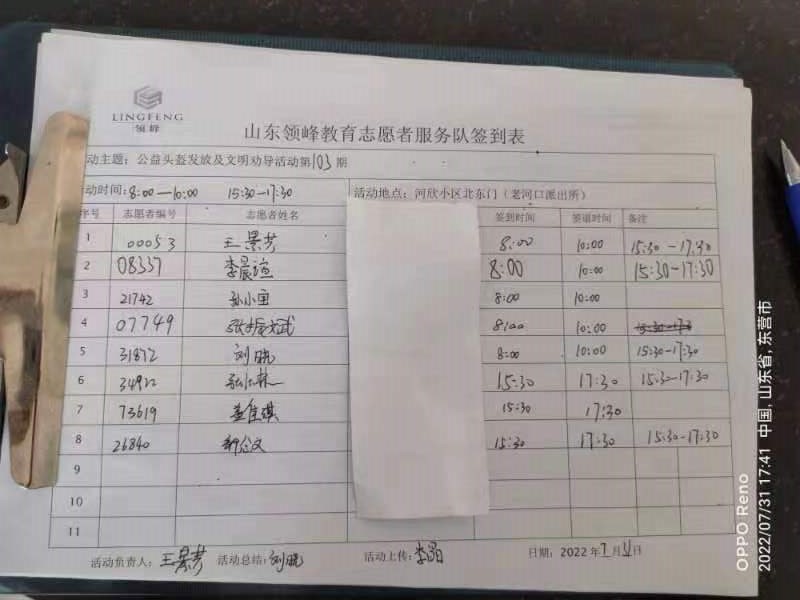 LINGFENG
领峰
山东领峰教育志愿者服务队签到表
动主题：公益头盔发放及文明劝导活动第103期
动时间：8:00—10:00 15:30—17:30 活动地点：河欣小区北东门（老河口派出所）
序号 志愿者编号 志愿者姓名 签到时间 签退时间 备注
1 00053 王景芳 8:00 10:00 15:30-17:30
2 08337 李晨谊 8:00 10:00 15:30-17:30
3 21742 孙小重 8:00 10:00
4 07749 张振武 8:00 10:00
5 31872 刘晓 8:00 10:00 15:30-17:30
6 15:30 17:30 15:30-17:30
7 73619 15:30 17:30
8 26840 15:30 17:30 15:30-17:30
9
10
11
活动负责人：王景芳 活动总结：刘晓 活动上传：李 日期：2022年7月31日
OPPO Reno
2022/07/31 17:41 中国, 山东省, 东营市